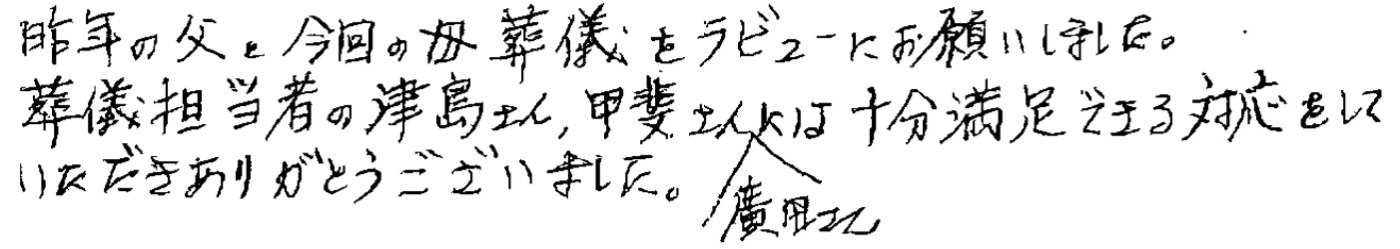 昨年の父と今回の母葬儀をラビューにお願いしました。
葬儀担当者の津島さん,甲斐さんには十分満足できる対応をして
いただきありがとうございました。
廣田さん